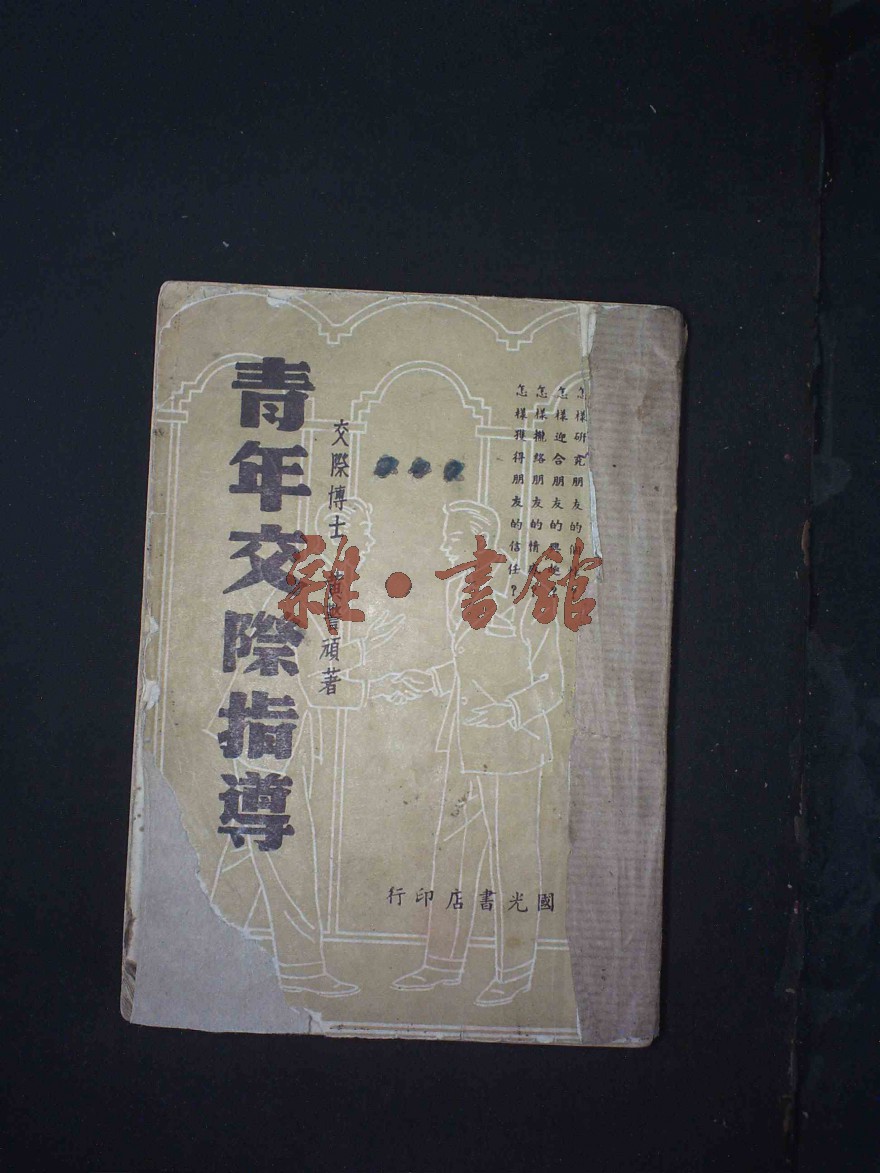 怎樣研究朋友的
怎樣迎合朋友的
怎樣攏絡朋友的情
怎樣獲得朋友的信任？
交際博士 黃警頑著
青年交際指導
國光書店印行
雜·書館